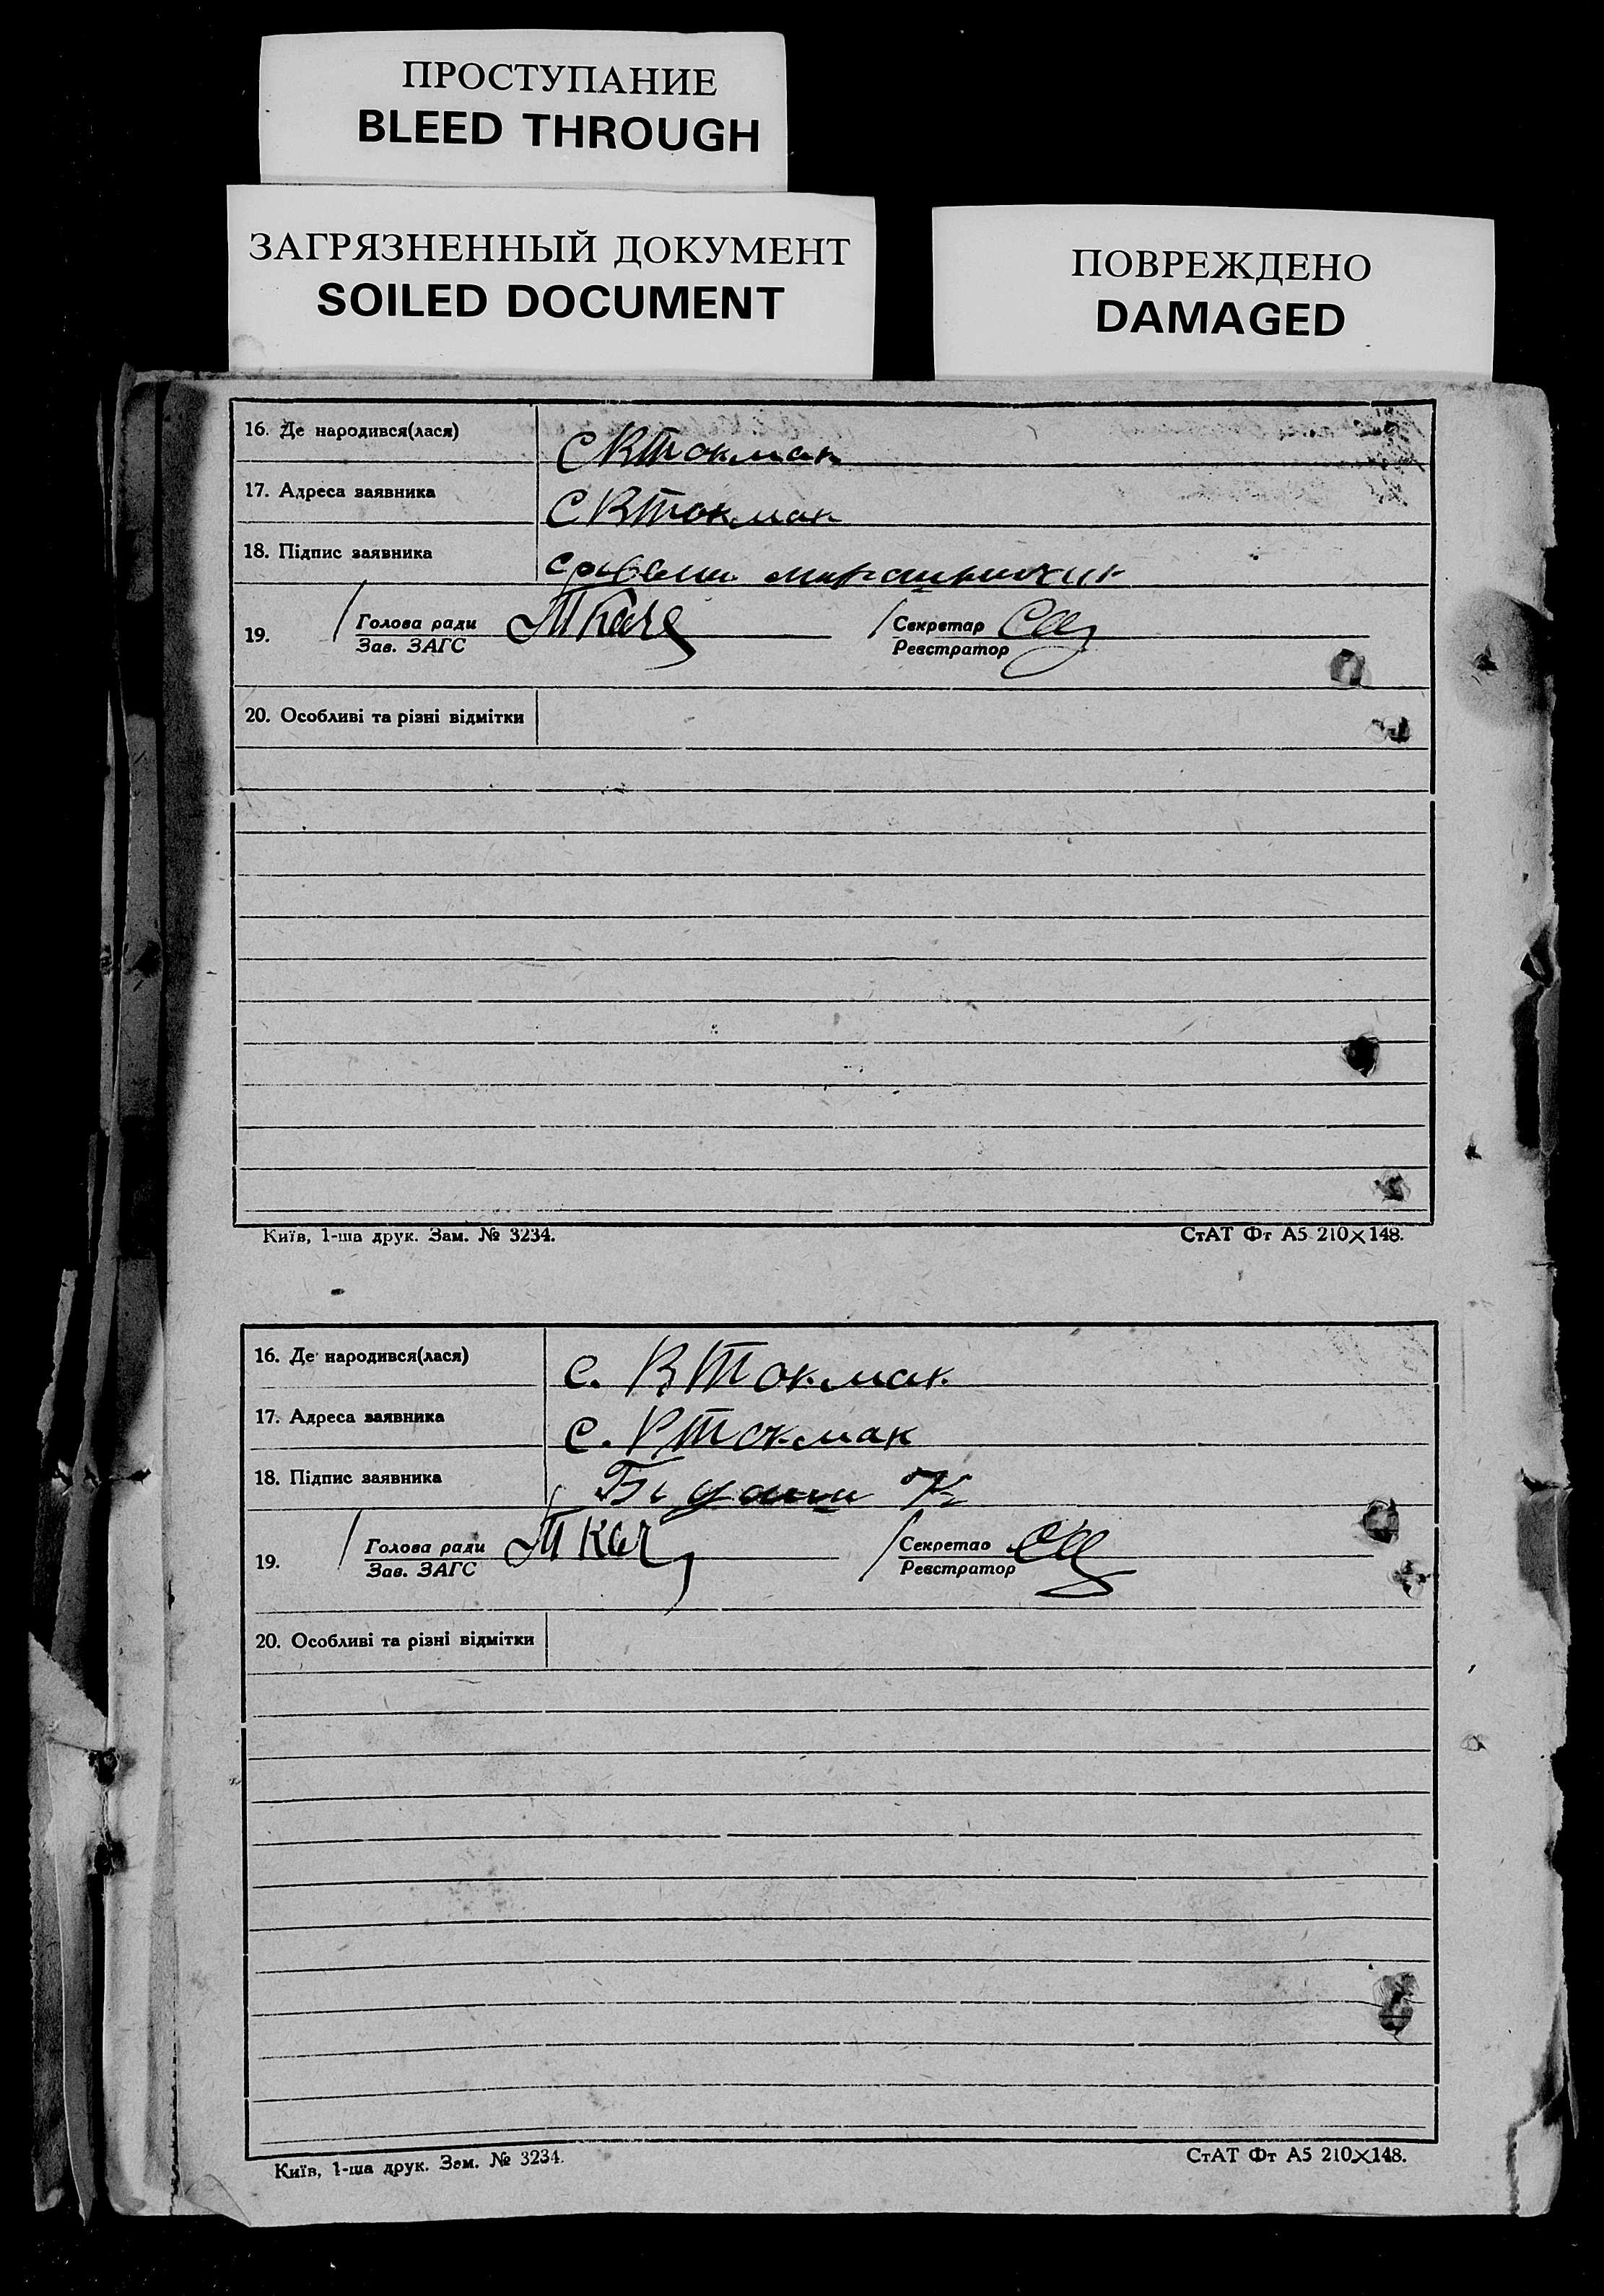 ПРОСТУПАНИЕ
BLEED THROUGH
ЗАГРЯЗНЕННЫЙ ДОКУМЕНТ
SOILED DOCUMENT
ПОВРЕЖДЕНО
DAMAGED
16. Де народився(лася) С ВТокмак
17. Адреса заявника С ВТокмак
18. Підпис заявника
19. Голова ради Секретар
Зав. ЗАГС Реєстратор
20. Особливі та різні відмітки
Київ, 1-ша друк. Зам. № 3234. СтАТ Фт А5 210×148.
16. Де народився(лася) с. ВТокмак
17. Адреса заявника с. ВТокмак
18. Підпис заявника
19. Голова ради Секретар
Зав. ЗАГС Реєстратор
20. Особливі та різні відмітки
Київ, 1-ша друк. Зам. № 3234. СтАТ Фт А5 210×148.